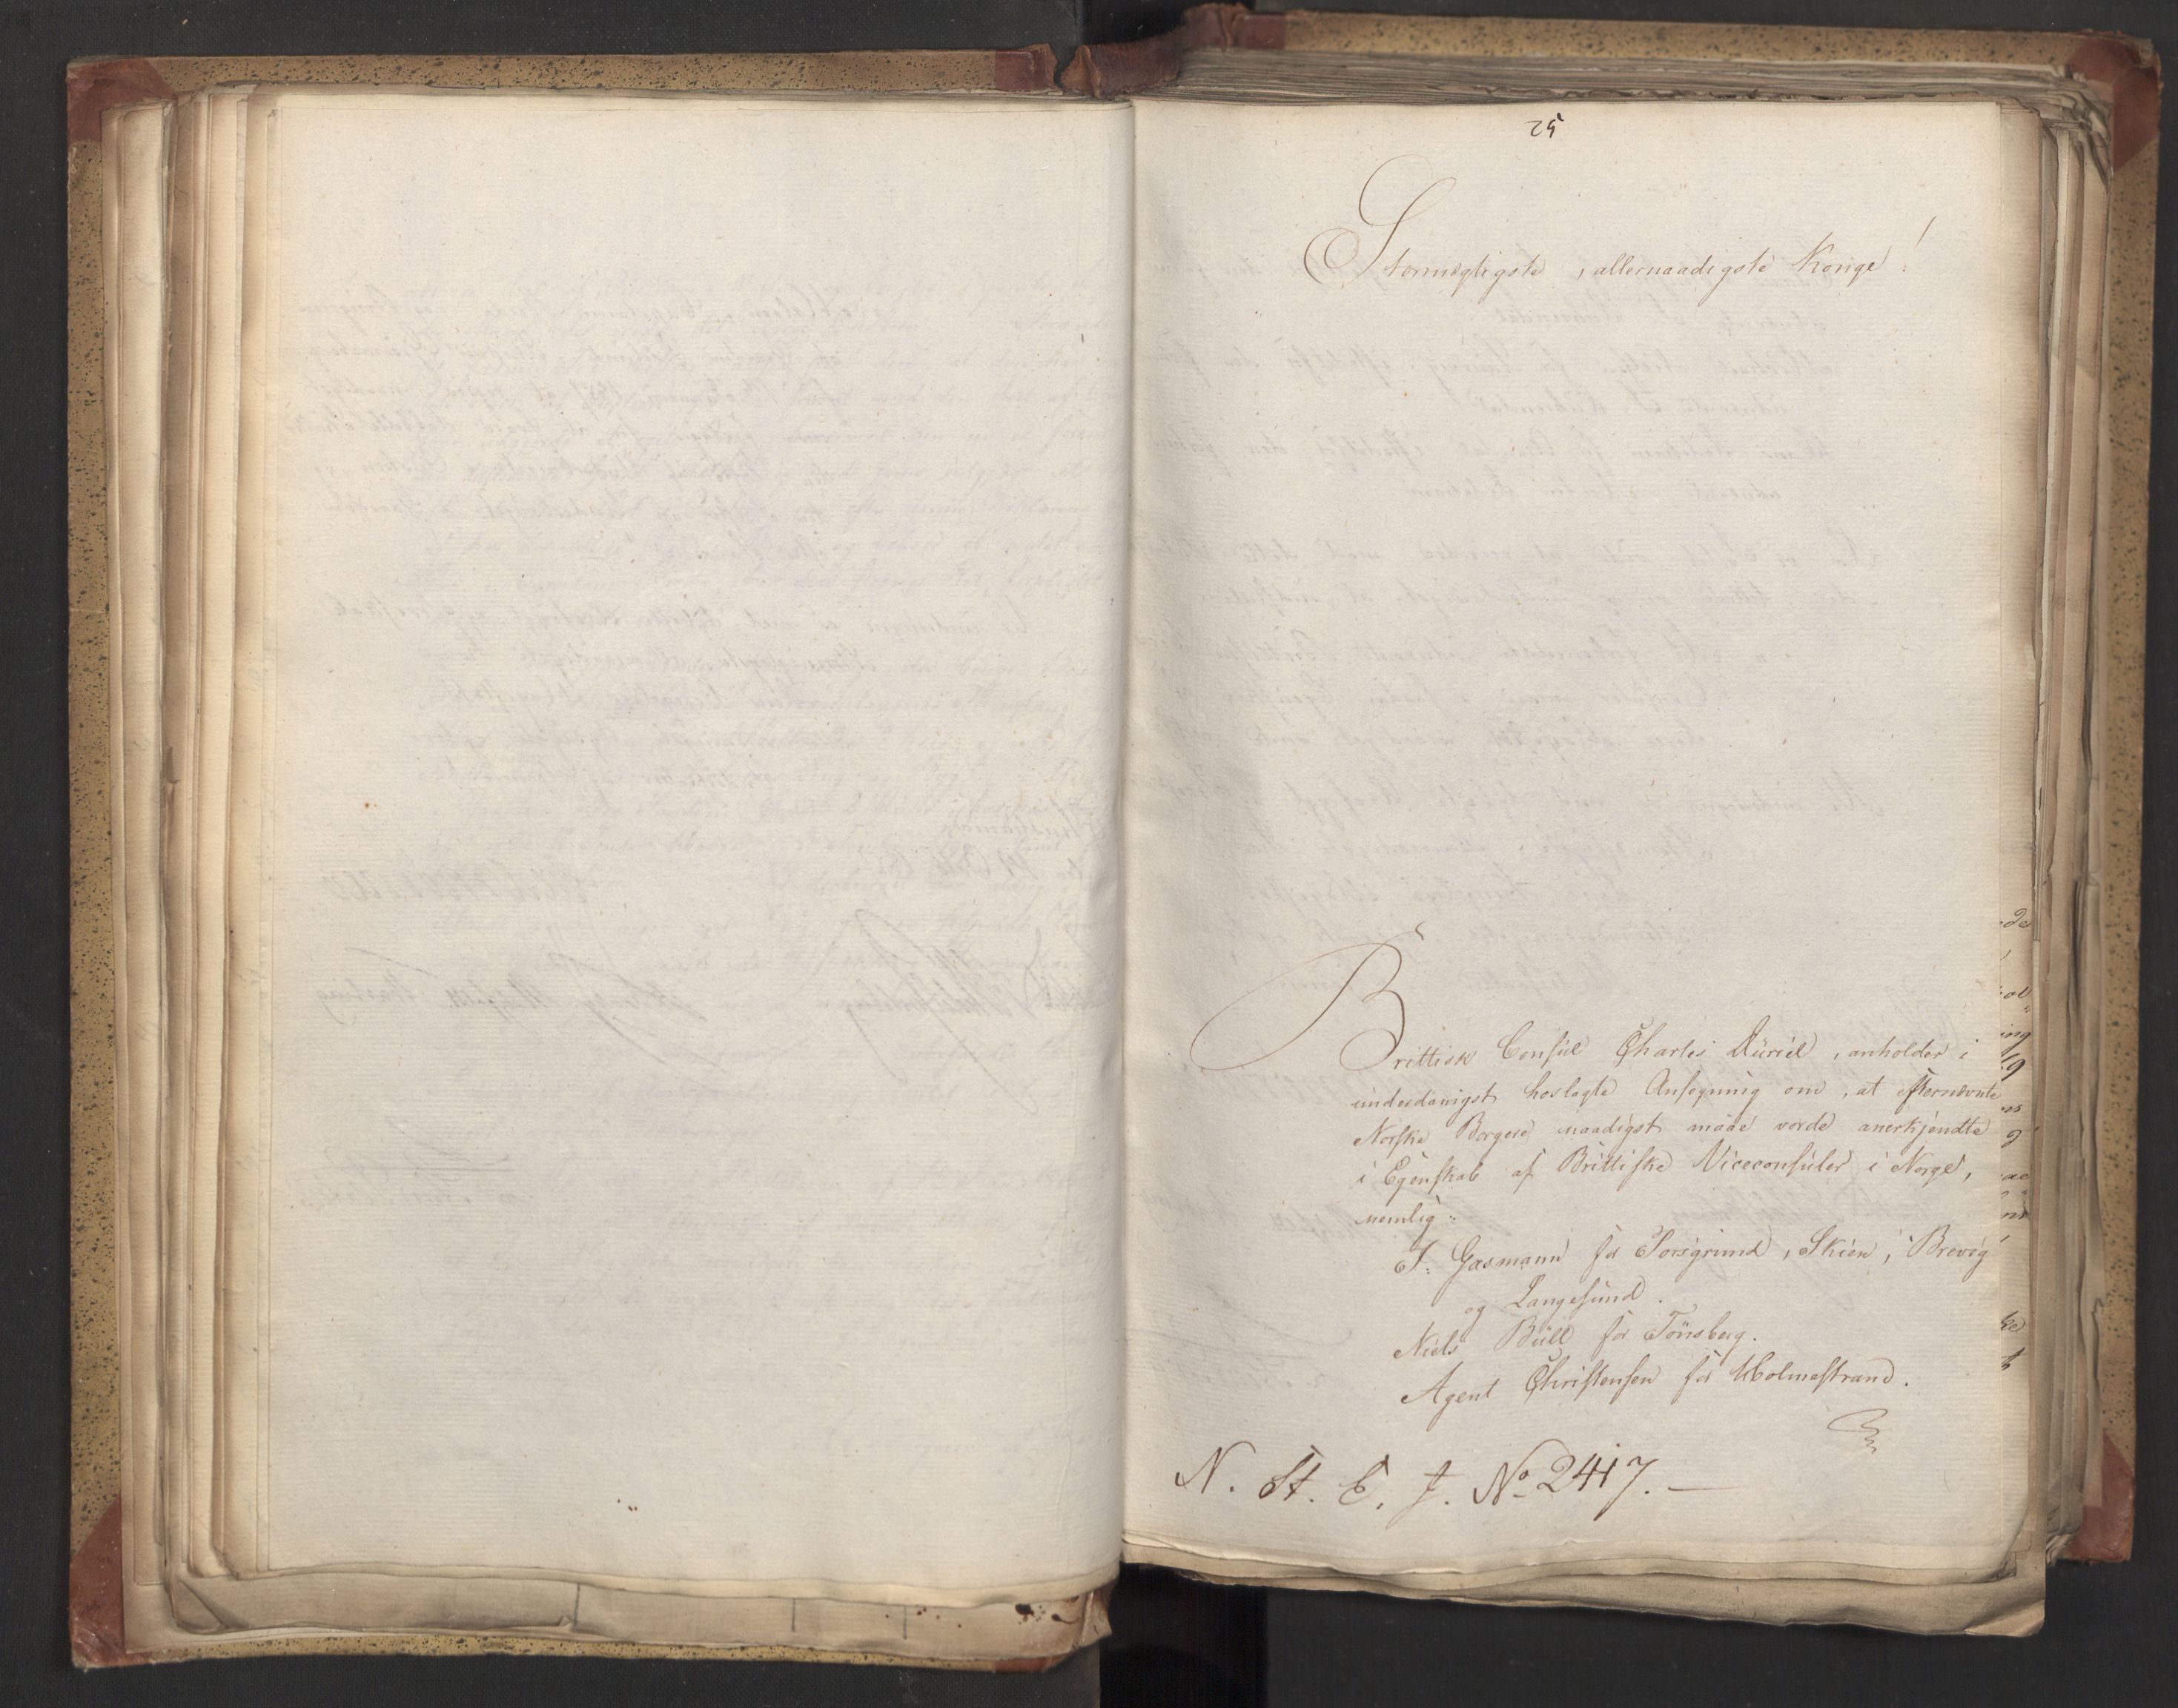 25
Stormægtigste, allernaadigste Konge!
Brittisk Consul Charles Muriel, anholder i
underdanigst hoslagte Ansøgning om, at efternævnte
Norske Borgere naadigst maae vorde anerkjendte
i Egenskab af Brittiske Viceconsuler i Norge,
nemlig:
J. Gasmann for Porsgrund, Skien, Brevig
og Langesund.
Niels Bull for Tönsberg.
Agent Christensen for Holmestrand.
N. St. E. J. No 2417. —